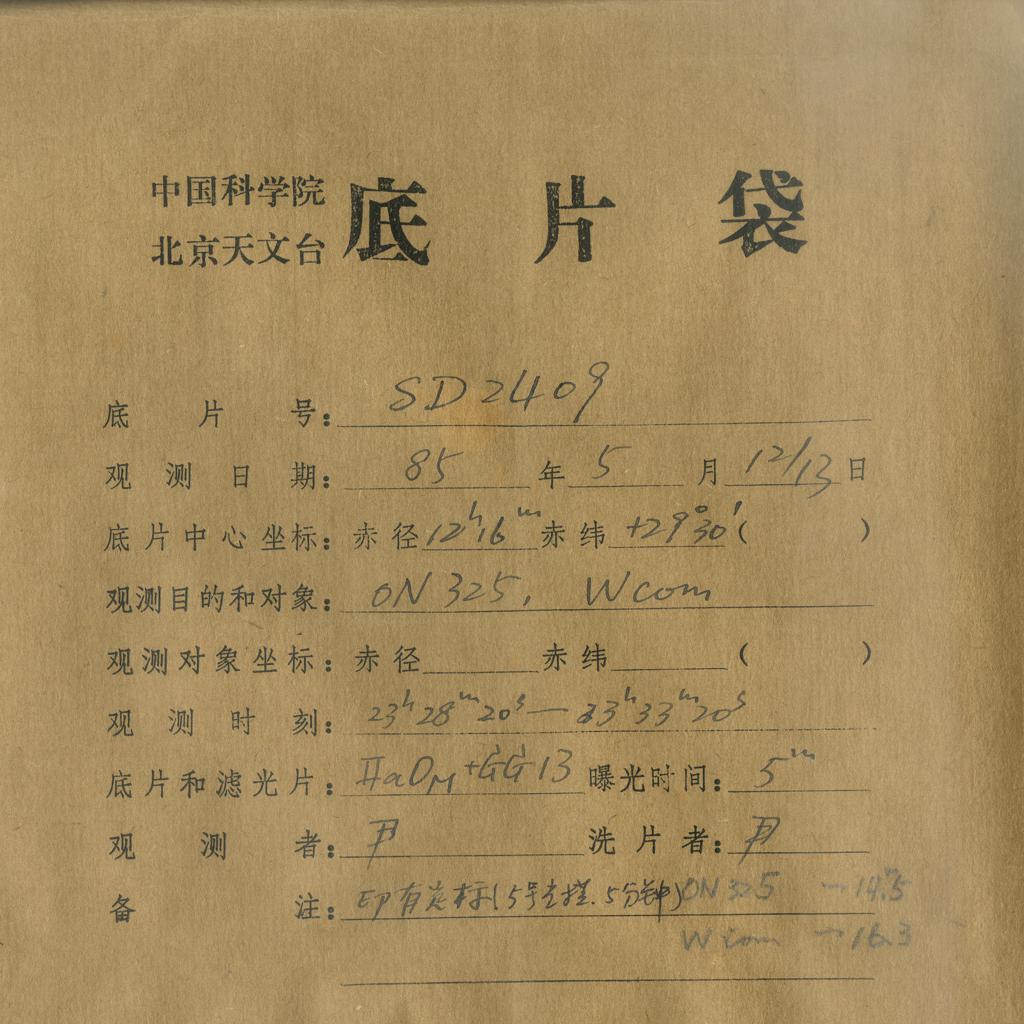 中国科学院
北京天文台 底片袋
底片号：SD2409
观测日期：85年5月12/13日
底片中心坐标：赤径12h16m赤纬+29°30′( )
观测目的和对象：ON 325, W com
观测对象坐标：赤径 赤纬 ( )
观测时刻：23h28m20s—23h33m20s
底片和滤光片：IIaOM+GG13 曝光时间：5m
观测者：尹 洗片者：尹
备注：印有光标(5号 5分钟) ON 325 — 14.5
W com — 16.3